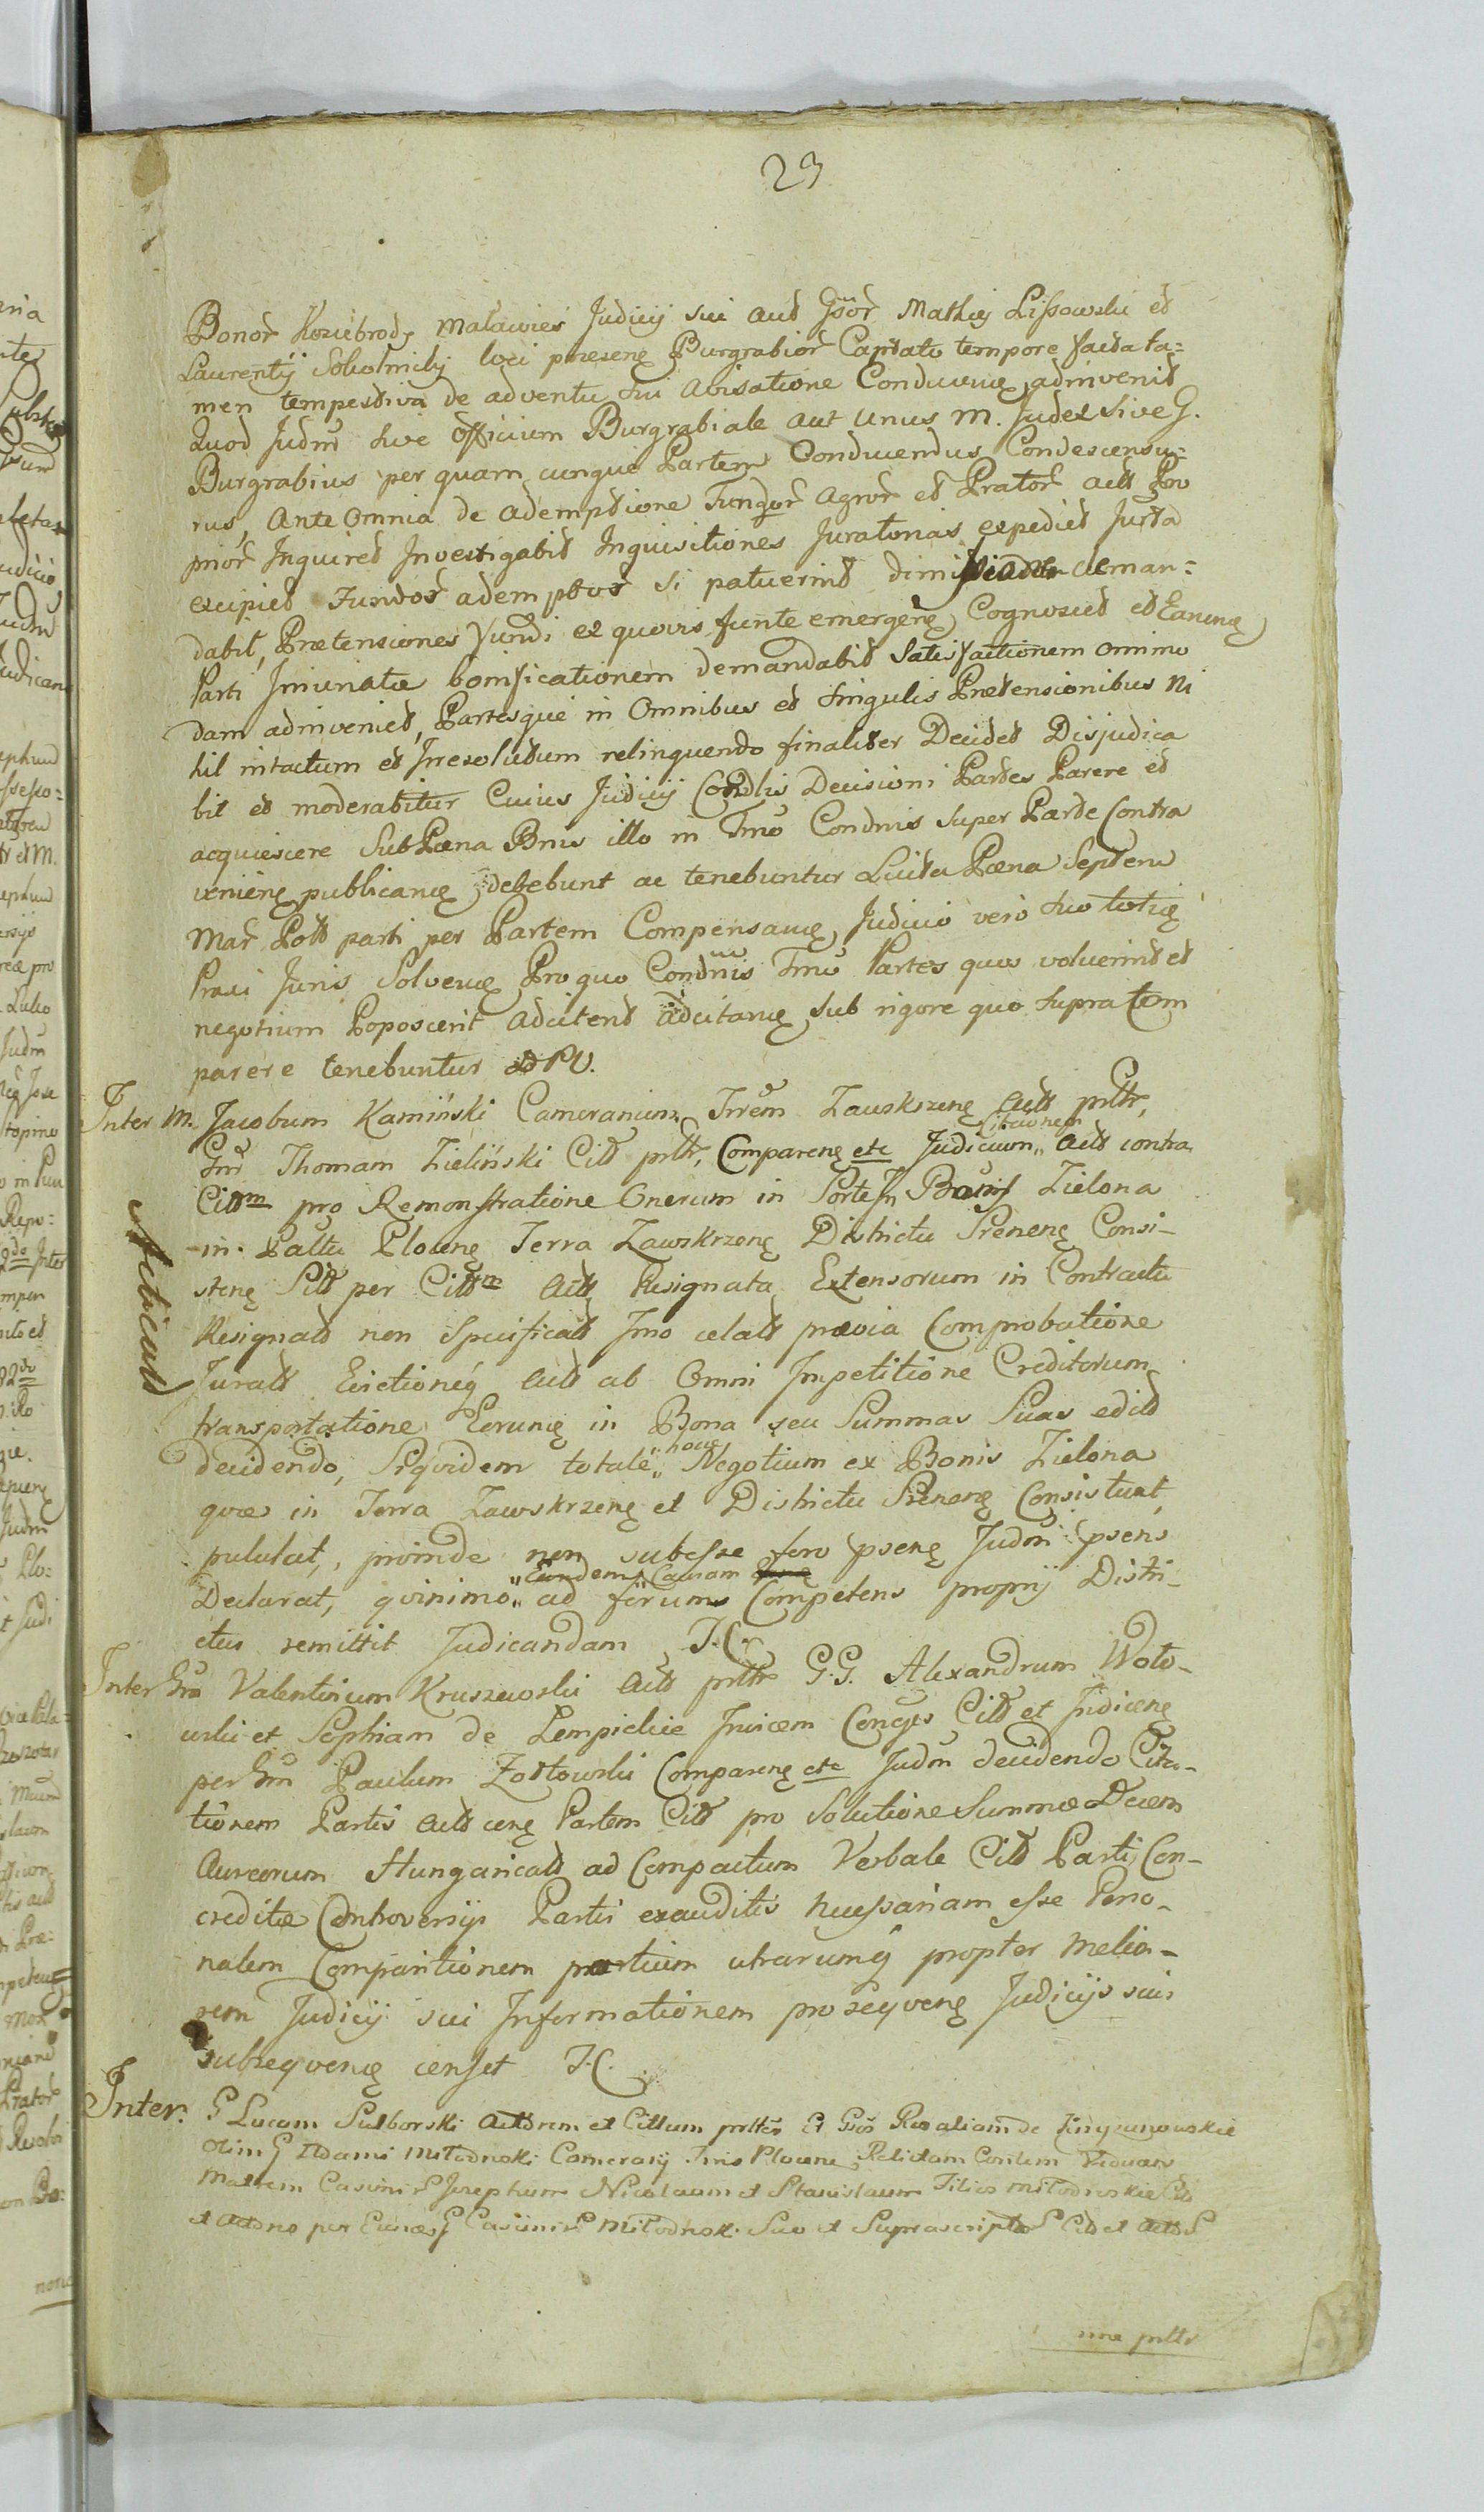 23
Bonor Koziebrody Malawieś Judicij sui aut Gsor Mathiæ Lissowski et
Laurentij Sokolnicky loci præsenę Burgrabior Captato tempore facta ta=
men tempestiva de adventu sui avisatione Conducenę adinvenit
Quod Judm sive Officium Burgrabiale aut unus M. Judex sive G.
Burgrabius per quam cunque Partem Conducendus Condescensu=
rus, Ante Omnia de ademptione Fundor Agror et Prator actt Pro
prior Inquiret Investigabit Inquisitiones Juratorias expediet Jurta
excipiet Fundos ademptos si patuerint deman=
dabit, Prætensiones Fundi ex quovis funte emergenę Cognoscet et Earumę
Parti Iniuriatæ bonificationem demandabit Satisfactionem omnimo
dam adinveniet, Partesque in Omnibus et singulis Prætensionibus Ni
hil intactum et Irresolutum relinquendo finaliter Decidet Disjudica
bit et moderabitur Cuius Judicij Condlis Decisioni Partes Parere et
acquiescere Sub Pæna Bnis illo in Tmo Condnis Super Parte Contra
venienę publicanę debebunt ac tenebuntur Luita Pæna Septem
Mar Poll parti per Partem Compensanę, Judicio vero suo totię
Pravi Juris Solvenę Pro quo Condnis Tmo Partes quos voluerint et
negotium Poposcerit adcitent adcitanę sub rigore quo supra Com
parere tenebuntur PV.
Inter M. Jacobum Kamiński Camerarium Trrem Zawskrzenę Actt prltr,
Gnr Thomam Zieliński Citt prltr, Comparenę etc Judicium Citationem actt contra
Cittm pro Remonstratione Onerum in Bonis Zielona
in Paltu Plocenę Terra Zawskrzenę Districtu Srenenę Consi-
Acticatt
stenę Sitt per Cittm Actt Resignata Extensorum in Contractu
Resignatt non Specificatt Imo celatt prævia Comprobatione
Juratt Evictioneq́ Actt ab Omni Impetitione Creditorum
transportatione Eorumę in Bona seu Summas Suas edito
decidendo, Siqvidem totale hocce Negotium ex Bonis Zielona
quæ in Terra Zawskrzenę et Districtu Srenenę Consistunt
pululat, proinde non subesse foro psenę Judm psens
Declarat, qvinimo Eandem Causam ad forum Competens proprij Distri-
ctus remittit Judicandam J.C.
Inter Gnr Valentinum Kruszewski Actt prltr G.G. Alexandrum Woło-
wski et Sophiam de Lempickie Invicem Conges Citt et Indicenę
per Gnm Paulum Żołtowski Comparenę etc Judm decidendo Cita-
tionem Partis Actt cenę Partem Citt pro Solutione Summæ Decem
Aureorum Hungaricatt ad Compactum Verbale Citt Parti Con-
creditæ Controversijs Partis exauditis necessariam esse Perso-
nalem Comparitionem partium utrarumq́ propter melio-
rem Judicij sui Informationem prosequenę Judicijs suis
subseqvenę censet J.C.
Inter G Lucam Sulborski Acttorem et Cittum prlttes Et Gsos Rosaliam de
Olim G Adami Miłodroski Camerarij Tris Plocens Relictam Contem Viduam
Matrem Casimir Josephum Nicolaum et Stanislaum Filios Miłodroskie Cit
et per Casimir Miłodroski Suo et Supra scripto Citt et
nne prltr